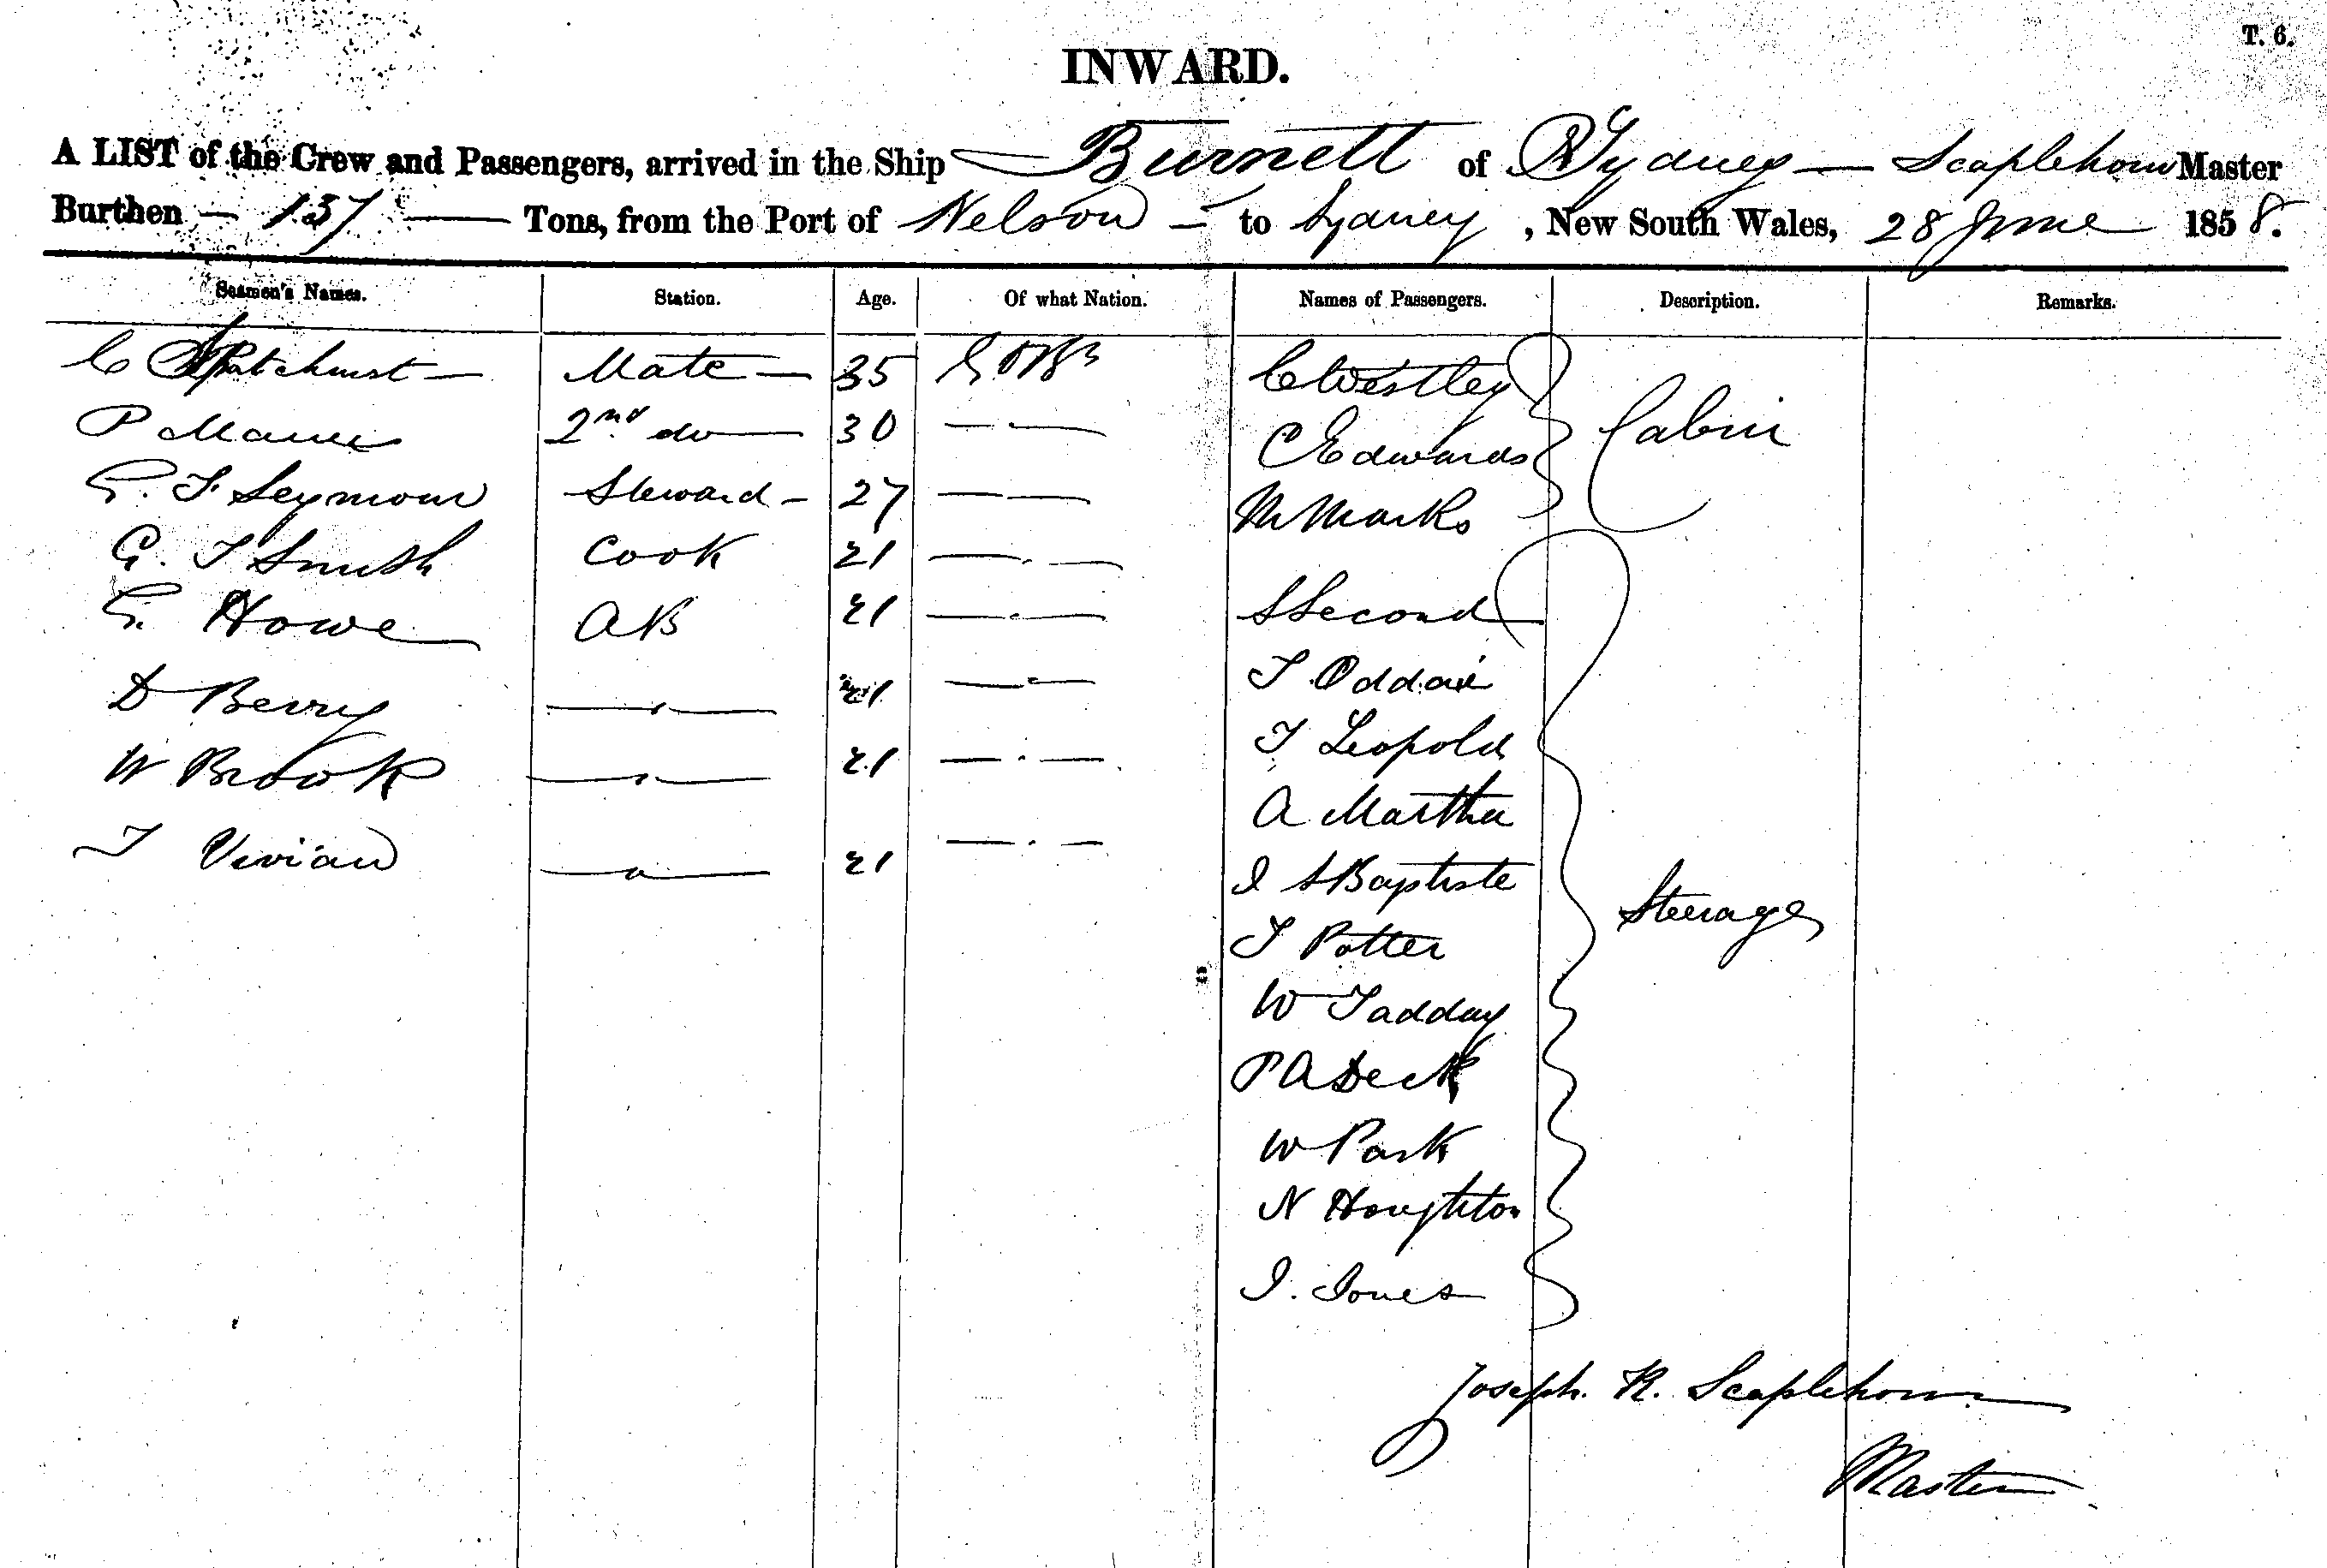 T. 6.
INWARD.
A LIST of the Crew and Passengers, arrived in the Ship Burnett of Sydney Scaplehorn Master
Burthen 137 Tons, from the Port of Nelson to Sydney, New South Wales, 28 June 1858.
Seamen's Names. Station. Age. Of what Nation. Names of Passengers. Description. Remarks.
C Mate 35 C Westley
P 2nd do 30 C Edwards Cabin
G. F Seymour Steward 27 M Marks
G. T Smith Cook 21
G. Howe AB 21 S Second
D Berry 21 T Oddaie
W Brook 21 T Leopold
T Vivian 21 A Martha
J S Baptiste Steerage
T Potter
W Tadday
P A Deck
W Park
N Houghton
J. Jones
Joseph. R. Scaplehorn
Master